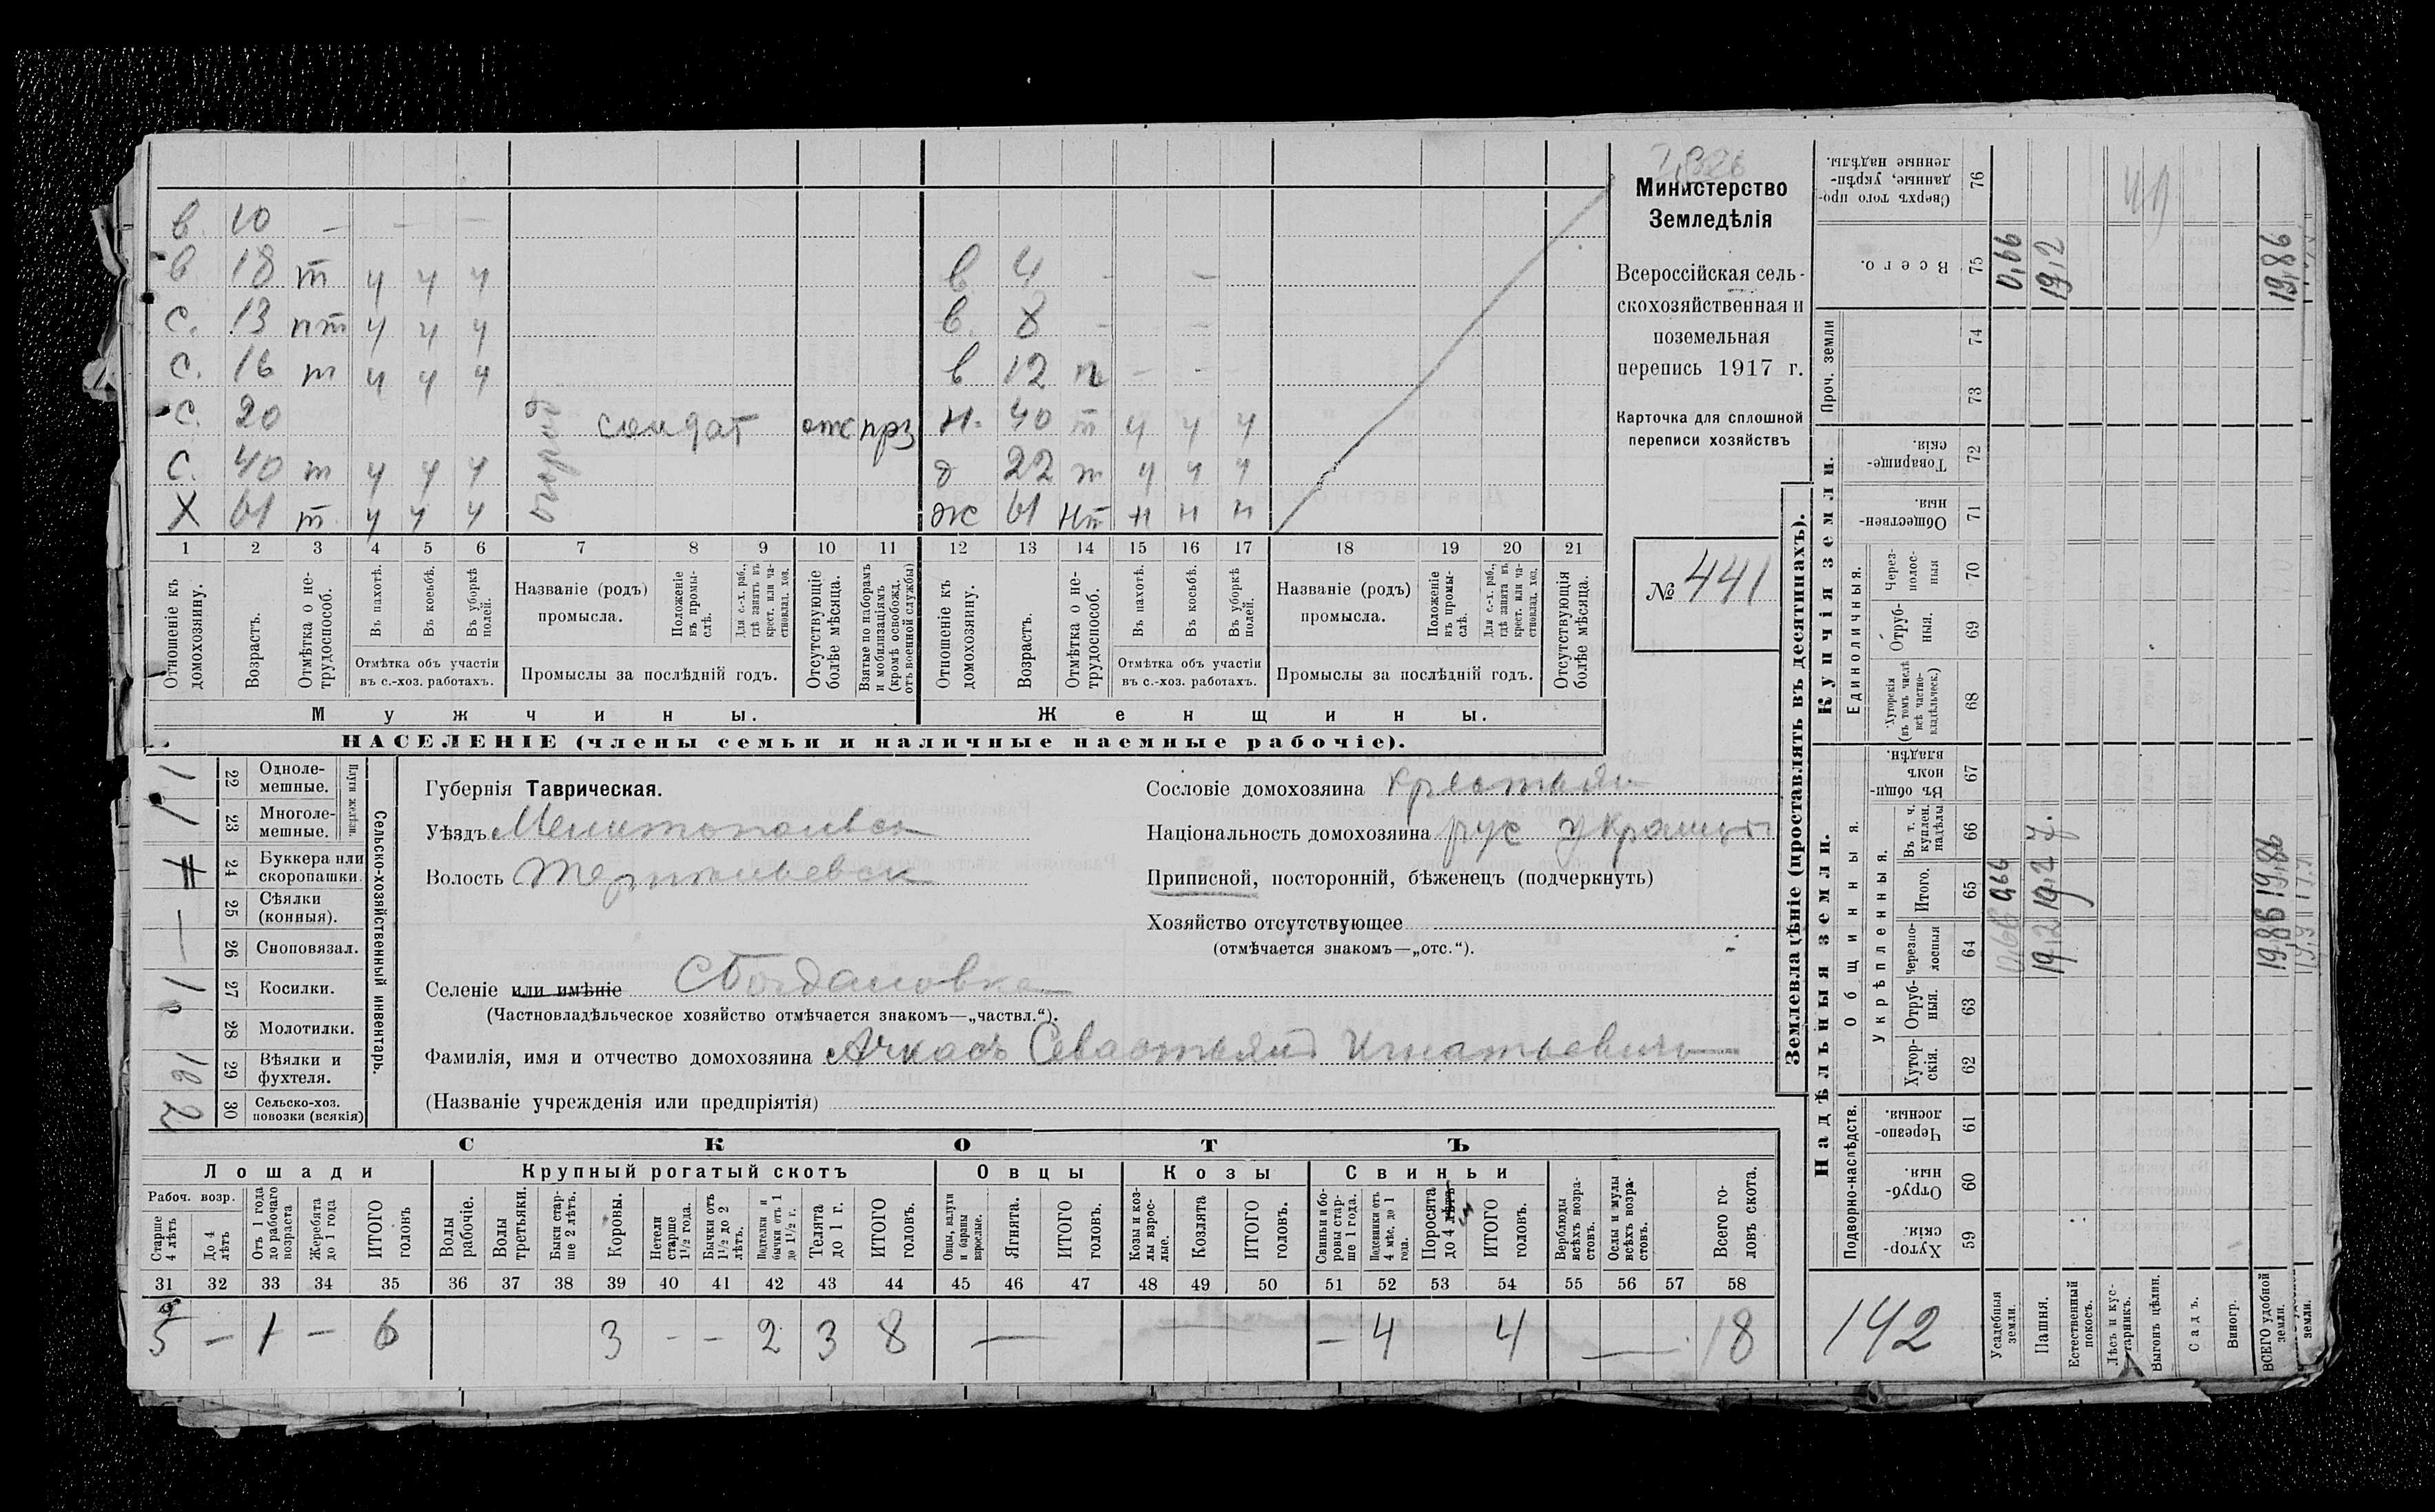 в 10 — — —
в 18 т ч ч ч в 4 - —
с. 13 пт ч ч ч в. 8 - —
с. 16 т ч ч ч в 12 п — - -
с. 20 солдат отс прз н. 40 т ч ч ч
с. 40 т ч ч ч д 22 т ч ч ч
х 61 т ч ч ч ж 61 нт н н н
1 2 3 4 5 6 7 8 9 10 11 12 13 14 15 16 17 18 19 20 21
Отношеніе къ домохозяину.
Возрастъ.
Отмѣтка о нетрудоспособ.
Въ пахотѣ.
Въ косьбѣ.
Въ уборкѣ полей.
Отмѣтка объ участіи
въ с.-хоз. работахъ.
Названіе (родъ)
промысла.
Положеніе въ промыслѣ.
Для с.-х. раб., гдѣ занятъ въ крест. или частновлад. хоз.
Промыслы за послѣдній годъ.
Отсутствующіе болѣе мѣсяца.
Взятые по наборамъ и мобилизаціямъ (кромѣ освобожд. отъ военной службы)
Отношеніе къ домохозяину.
Возрастъ.
Отмѣтка о нетрудоспособ.
Въ пахотѣ.
Въ косьбѣ.
Въ уборкѣ полей.
Отмѣтка объ участіи
въ с.-хоз. работахъ.
Названіе (родъ)
промысла.
Положеніе въ промыслѣ.
Для с.-х. раб., гдѣ занята въ крест. или частновлад. хоз.
Промыслы за послѣдній годъ.
Отсутствующія болѣе мѣсяца.
Мужчины. Женщины.
НАСЕЛЕНІЕ (члены семьи и наличные наемные рабочіе).
Министерство
Земледѣлія
Всероссійская сель-
скохозяйственная и
поземельная
перепись 1917 г.
Карточка для сплошной
переписи хозяйствъ
№ 441
22 Одноле-
мешные.
23 Многоле-
мешные.
Плуги желѣзн.
24 Буккера или
скоропашки.
25 Сѣялки
(конныя).
26 Сноповязал.
27 Косилки.
28 Молотилки.
29 Вѣялки и
фухтеля.
30 Сельско-хоз.
повозки (всякія)
Сельско-хозяйственный инвентарь.
Губернія Таврическая.
Уѣздъ Мелитопольск
Волость Терпеньевск
Селеніе или имѣніе С Богдановка
(Частновладѣльческое хозяйство отмѣчается знакомъ—„частвл.“).
Фамилія, имя и отчество домохозяина Ачкасъ Севастьянъ Игнатьевичъ
(Названіе учрежденія или предпріятія)
Сословіе домохозяина крестьян
Національность домохозяина рус украинец
Приписной, посторонній, бѣженецъ (подчеркнуть)
Хозяйство отсутствующее
(отмѣчается знакомъ—„отс.“).
СКОТЪ
Лошади Крупный рогатый скотъ Овцы Козы Свиньи
Рабоч. возр.
Старше 4 лѣтъ
До 4 лѣтъ
Отъ 1 года до рабочаго возраста
Жеребята до 1 года
ИТОГО головъ
Волы рабочіе.
Волы третьяки.
Быки старше 2 лѣтъ.
Коровы.
Нетели старше 1½ года.
Бычки отъ 1½ до 2 лѣтъ.
Подтелки и бычки отъ 1 до 1½ г.
Телята до 1 г.
ИТОГО головъ.
Овцы, валухи и бараны взрослые.
Ягнята.
ИТОГО головъ.
Козы и козлы взрослые.
Козлята
ИТОГО головъ.
Свиньи и боровы старше 1 года.
Подсвинки отъ 4 мѣс. до 1 года.
Поросята до 4 лѣтъ м
ИТОГО головъ.
Верблюды всѣхъ возрастовъ.
Ослы и мулы всѣхъ возрастовъ.
Всего головъ скота.
31 32 33 34 35 36 37 38 39 40 41 42 43 44 45 46 47 48 49 50 51 52 53 54 55 56 57 58
5 — 1 — 6 3 - - 2 3 8 — — 4 4 — 18
Землевладѣніе (проставлять въ десятинахъ).
Надѣльныя земли. Купчія земли. Проч. земли
Подворно-наслѣдств.
Общинныя.
Укрѣпленныя.
Единоличныя.
Хуторскія. 59
Отрубныя. 60
Черезполосныя. 61
Хуторскія. 62
Отрубныя. 63
Черезполосныя 64
Итого. 65
Въ т. ч. куплен. надѣлы 66
Въ общиномъ владѣн. 67
Хуторскія (въ томъ числѣ всѣ частновладѣльческ.) 68
Отрубныя. 69
Черезполосныя 70
Общественныя. 71
Товарищескія. 72
73
74
Всего. 75
Сверхъ того проданные, укрѣпленные надѣлы. 76
142
Усадебныя земли. 0,66 0,66 0,66
Пашня. 19,2 19,2 19,2
Естественный покосъ.
Лѣсъ и кустарникъ.
Выгонъ цѣлин.
Садъ.
Виногр.
ВСЕГО удобной земли. 19,86 19,86 19,86